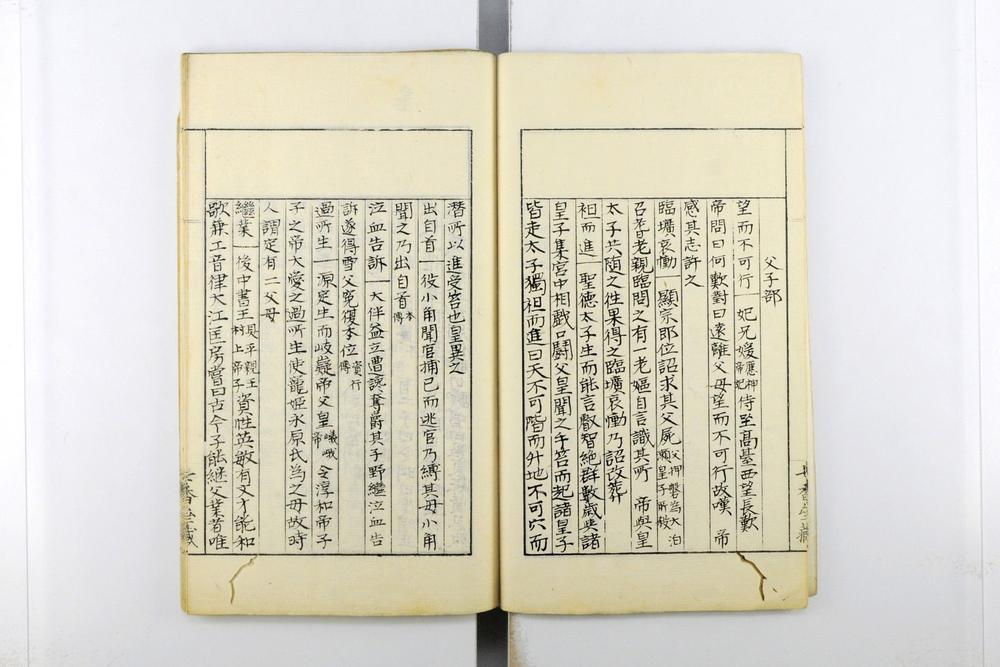 父子部
望而不可行 妃兄媛應神帝妃侍至高臺西望長歎
帝問曰何歎對曰遠離父母望而不可行故嘆 帝
感其志許之
臨壙哀慟 顯宗即位詔求其父屍父押磐為大泊瀬皇子所殺
召耆老親臨問之有一老嫗自言識其所 帝與皇
太子共隨之往果得之臨壙哀慟乃詔改葬
袒而進 聖德太子生而能言叡智絕群數歲與諸
皇子集宮中相戲口鬪父皇聞之手笞而起諸皇子
皆走太子獨袒而進曰天不可階而升地不可穴而
潛所以進受笞也皇異之
出自首 役小角聞官捕已而逃官乃縛其母小角
聞之乃出自首本傳
泣血告訴 大伴益立遭讒奪爵其子野繼泣血告
訴遂得雪父冤復本位資行傳
過所生 源定生而岐嶷帝父皇嵯峨帝令淳和帝子
子之帝大愛之過所生使寵姬永原氏為之母故時
人謂定有二父母
繼業 後中書王具平親王村上帝子資性英敏有文才能和
歌兼工音律大江匡房嘗曰古今子能継父業者唯